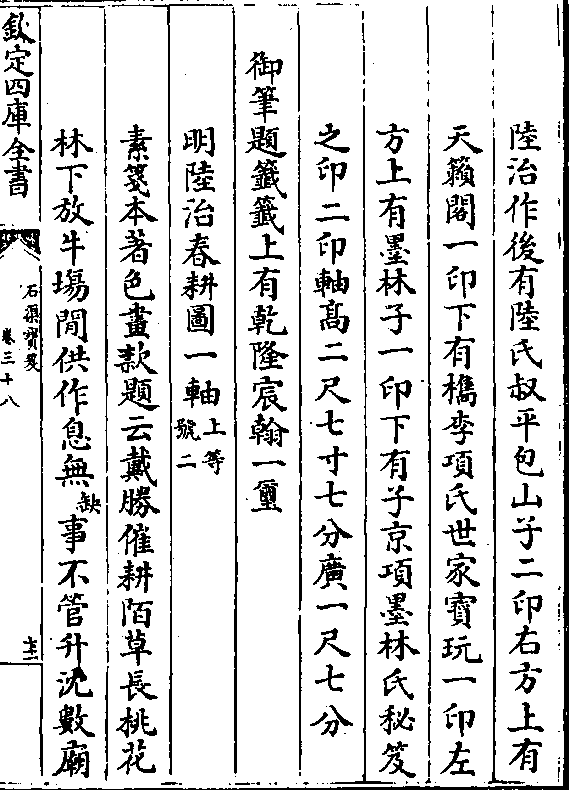 陸治作後有陸氏叔平包山子二印右方上有
天籟閣一印下有檇李項氏世家寶玩一印左
方上有墨林子一印下有子京項墨林氏秘笈
之印二印軸髙二尺七寸七分廣一尺七分
御筆題籤籤上有乾隆宸翰一璽
明陸治春耕圖一軸上等號二
素箋本著色畫款題云戴勝催耕陌草長桃花
林下放牛塲閒供作息無缺事不管升沈數廟
欽定四庫全書
石渠寶笈
卷三十八